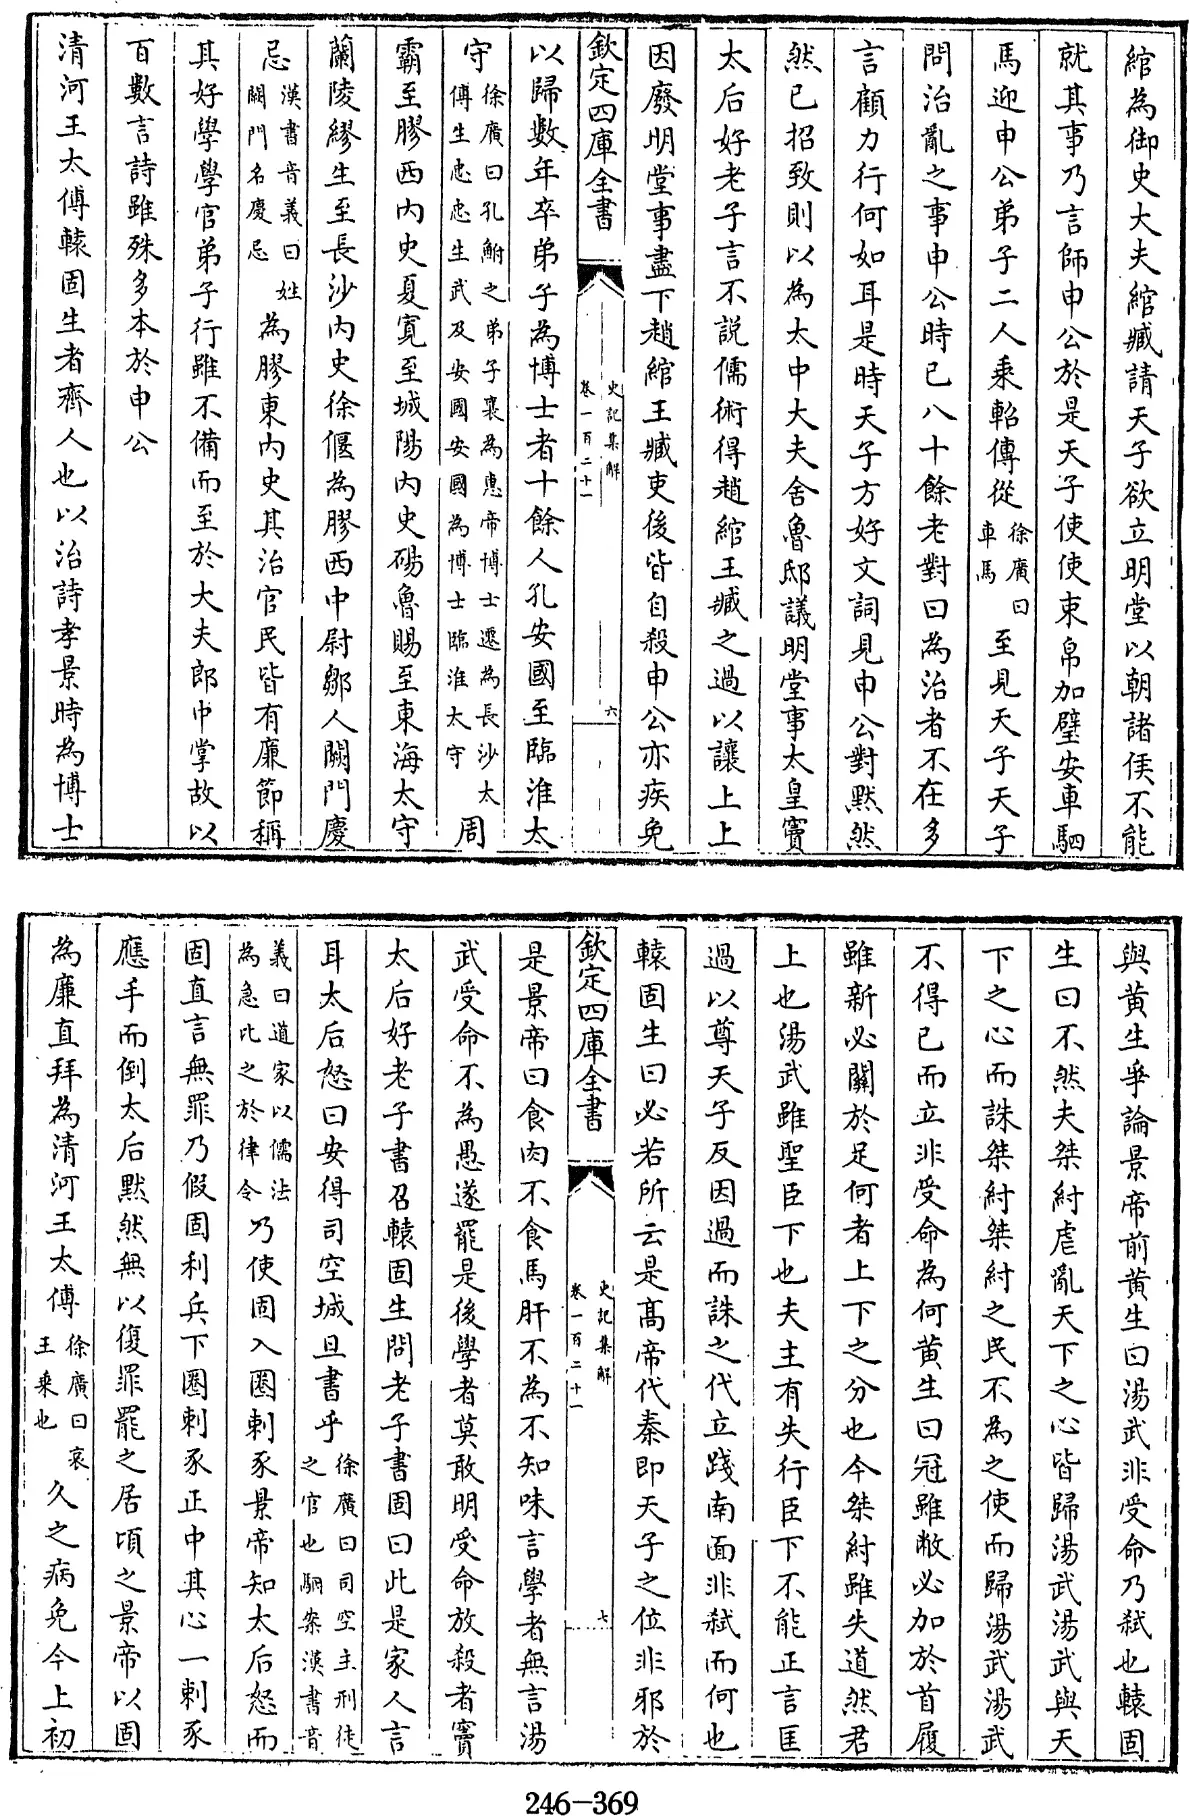 綰為御史大夫綰臧請天子欲立明堂以朝諸侯不能
就其事乃言師申公於是天子使使束帛加璧安車駟
馬迎申公弟子二人乘軺傳從徐廣曰車馬至見天子天子
問治亂之事申公時已八十餘老對曰為治者不在多
言顧力行何如耳是時天子方好文詞見申公對默然
然已招致則以為太中大夫舍魯邸議明堂事太皇竇
太后好老子言不說儒術得趙綰王臧之過以讓上上
因廢明堂事盡下趙綰王臧吏後皆自殺申公亦疾免
欽定四庫全書 史記集解卷一百二十一 六
以歸數年卒弟子為博士者十餘人孔安國至臨淮太
守徐廣曰孔鮒之弟子襄為惠帝博士遷為長沙太傅生忠忠生武及安國安國為博士臨淮太守周
霸至膠西內史夏寬至城陽內史碭魯賜至東海太守
蘭陵繆生至長沙內史徐偃為膠西中尉鄒人闕門慶
忌漢書音義曰姓闕門名慶忌為膠東內史其治官民皆有廉節稱
其好學學官弟子行雖不備而至於大夫郎中掌故以
百數言詩雖殊多本於申公
清河王太傅轅固生者齊人也以治詩孝景時為博士
與黃生爭論景帝前黃生曰湯武非受命乃弒也轅固
生曰不然夫桀紂虐亂天下之心皆歸湯武湯武與天
下之心而誅桀紂桀紂之民不為之使而歸湯武湯武
不得已而立非受命為何黃生曰冠雖敝必加於首履
雖新必關於足何者上下之分也今桀紂雖失道然君
上也湯武雖聖臣下也夫主有失行臣下不能正言匡
過以尊天子反因過而誅之代立踐南面非弒而何也
轅固生曰必若所云是高帝代秦即天子之位非邪於
欽定四庫全書 史記集解卷一百二十一 七
是景帝曰食肉不食馬肝不為不知味言學者無言湯
武受命不為愚遂罷是後學者莫敢明受命放殺者竇
太后好老子書召轅固生問老子書固曰此是家人言
耳太后怒曰安得司空城旦書乎徐廣曰司空主刑徒之官也駰案漢書音
義曰道家以儒法為急比之於律令乃使固入圈刺豕景帝知太后怒而
固直言無罪乃假固利兵下圈刺豕正中其心一刺豕
應手而倒太后默然無以復罪罷之居頃之景帝以固
為廉直拜為清河王太傅徐廣曰哀王乘也久之病免今上初
246-369